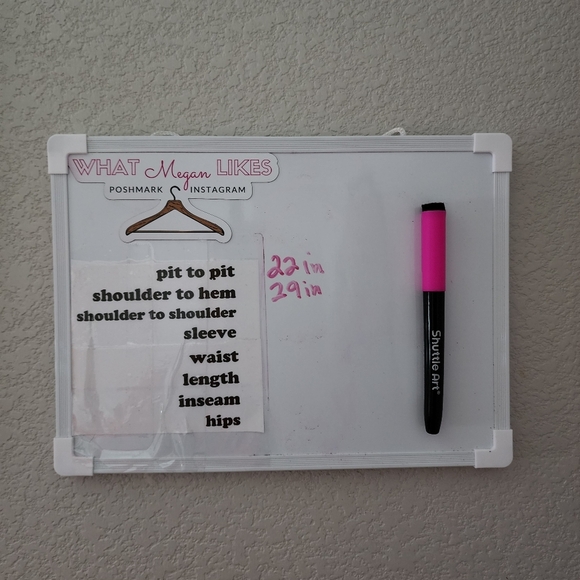 WHAT Megan LIKES
POSHMARK INSTAGRAM
pit to pit 22 in
shoulder to hem 29 in
shoulder to shoulder
sleeve
waist
length
inseam
hips
Shuttle Art®